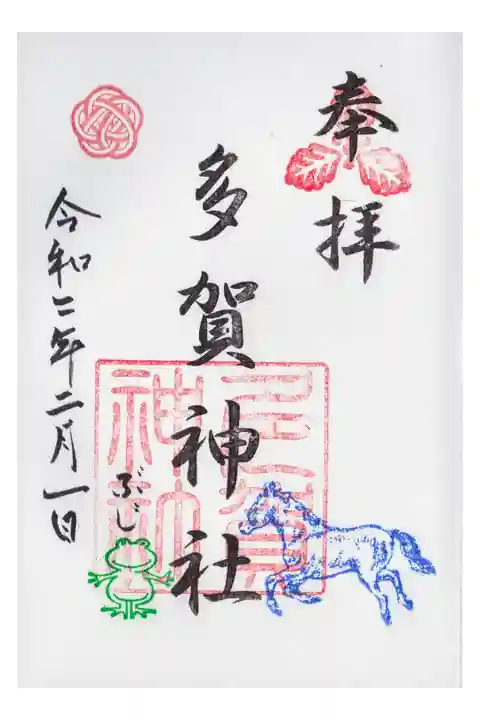 奉拝
多賀神社
多賀神社
令和二年二月一日
ぶじ